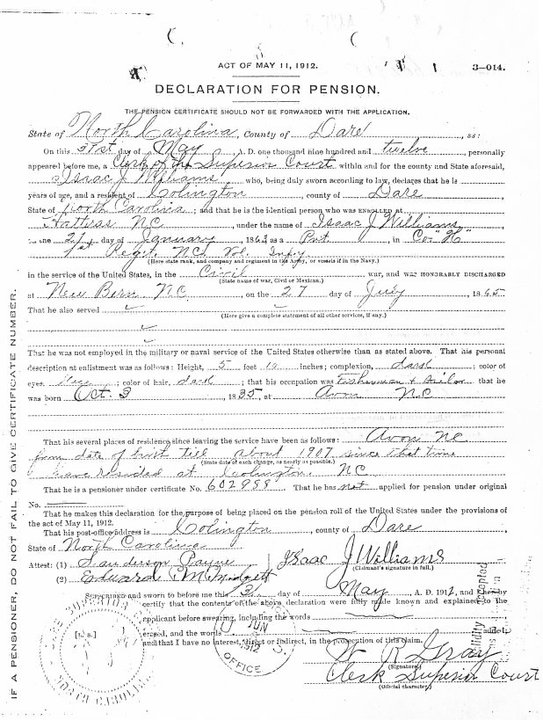 ACT OF MAY 11, 1912.
3—014.
DECLARATION FOR PENSION.
THE PENSION CERTIFICATE SHOULD NOT BE FORWARDED WITH THE APPLICATION.
State of North Carolina, County of Dare, ss:
On this 31st day of May, A. D. one thousand nine hundred and twelve, personally
appeared before me, a Clerk of the Superior Court within and for the county and State aforesaid,
Isaac J Williams who, being duly sworn according to law, declares that he is
years of age, and a resident of Colington, county of Dare,
State of North Carolina; and that he is the identical person who was ENROLLED at
Hatteras NC, under the name of Isaac J Williams,
on the 21 day of January, 1863 as a Pvt, in Co "H"
1st Regit. NC. Vol. Infy.
(Here state rank, and company and regiment in the Army, or vessels if in the Navy.)
in the service of the United States, in the Civil war, and was HONORABLY DISCHARGED
(State name of war, Civil or Mexican.)
at New Bern NC, on the 27 day of July, 1865
That he also served
(Here give a complete statement of all other services, if any.)
That he was not employed in the military or naval service of the United States otherwise than as stated above. That his personal
description at enlistment was as follows: Height, 5 feet 10 inches; complexion, dark; color of
eyes, ; color of hair, dark; that his occupation was Fisherman & Sailor that he
was born Oct. 3, 1835, at Avon NC
That his several places of residence since leaving the service have been as follows: Avon NC
from date of birth till about 1907 since that time
(State date of each change, as nearly as possible.)
have resided at Colington, NC
That he is a pensioner under certificate No. 602988 That he has not applied for pension under original
No.
That he makes this declaration for the purpose of being placed on the pension roll of the United States under the provisions of
the act of May 11, 1912.
That his post-office address is Colington, county of Dare
State of North Carolina
Attest: (1) Sanderson Payne
Isaac J Williams
(Claimant's signature in full.)
(2) Edward S. Midgett
Subscribed and sworn to before me this 31 day of May, A. D. 1912, and I hereby
certify that the contents of the above declaration were fully made known and explained to the
applicant before swearing, including the words
erased, and the words added;
and that I have no interest, direct or indirect, in the prosecution of this claim.
W R Gray
(Signature.)
Clerk Superior Court
(Official character.)
IF A PENSIONER, DO NOT FAIL TO GIVE CERTIFICATE NUMBER.
SUPERIOR
[L. S.]
NORTH CAROLINA
JUN
1912
OFFICE
accepted
validity